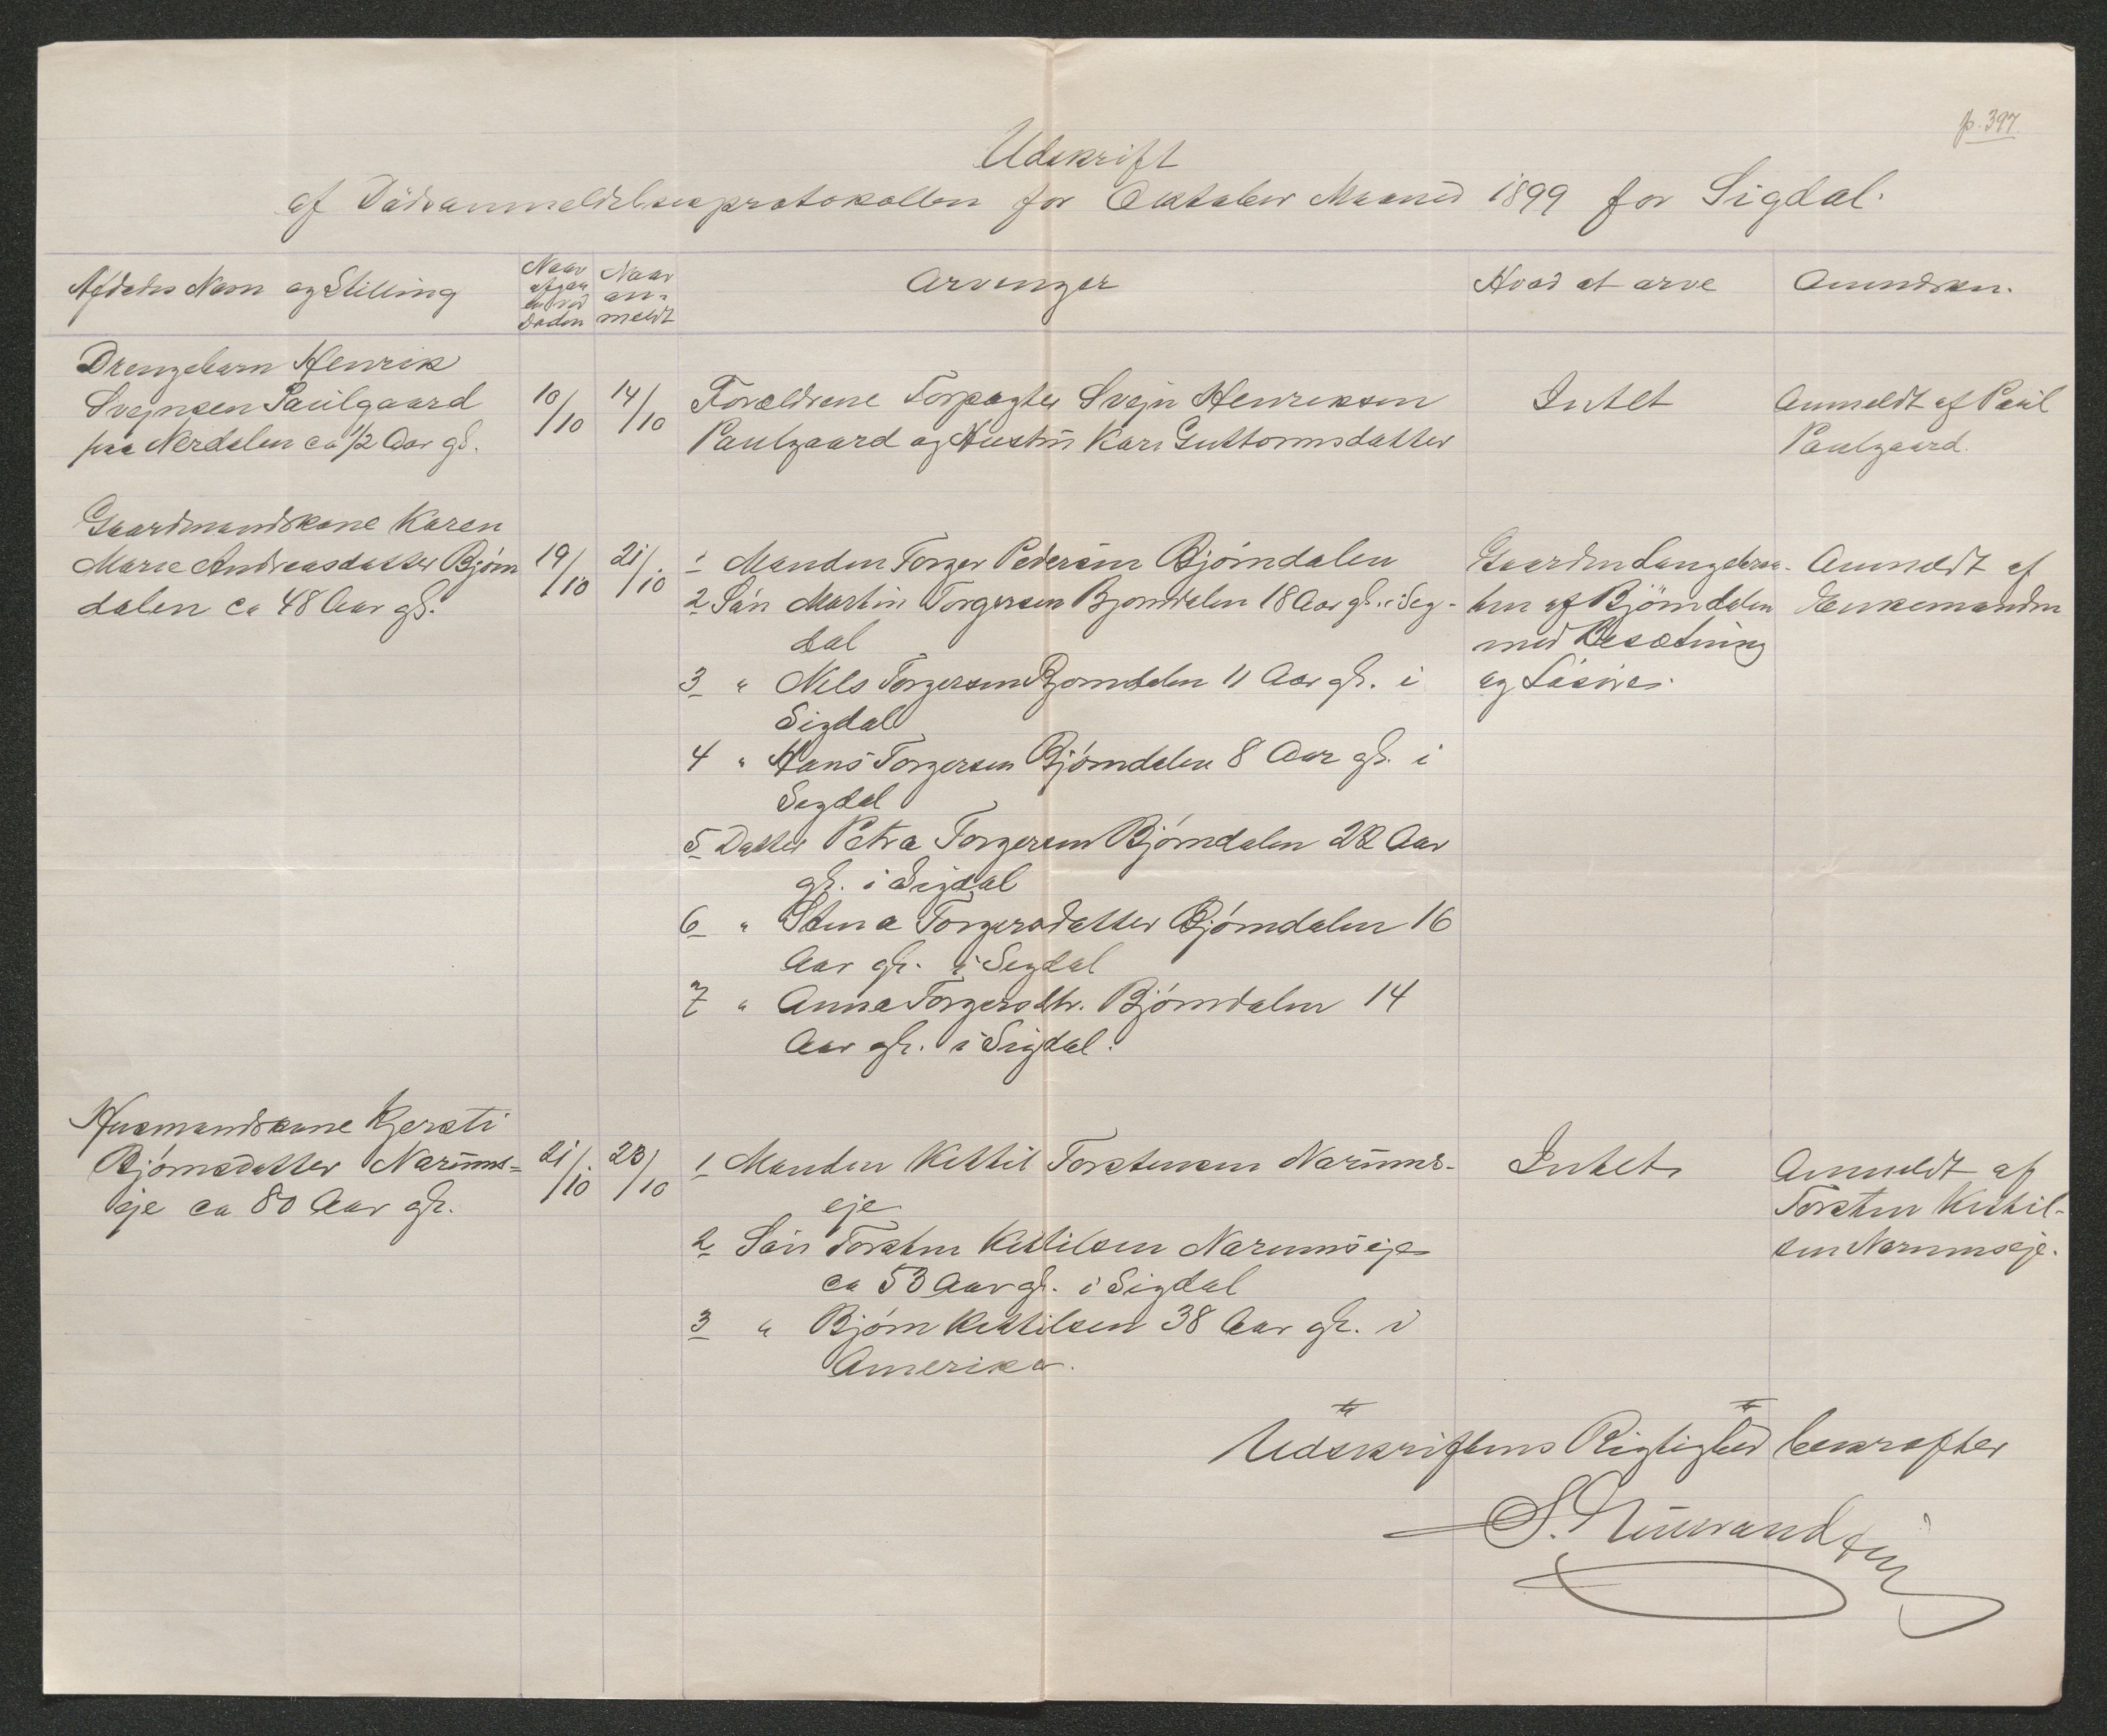 p. 397.
Udskrift
af Dödsanmeldelsesprotokollen for Oktober Maaned 1899 for Sigdal.
Afdødes Navn og Stilling
Naar
afgaa
en ved
Døden
Naar
an-
meldt
Arvinger
Hvad at arve
Anmærkn.
Drengebarn Henrik
Svejnsen Paulgaard
paa Nerdalen ca 1/2 Aar gl.
10/10
14/10
Forældrene Forpagter Svejn Henriksen
Paulgaard og Hustru Kari Guttormsdatter
Intet
Anmeldt af Paul
Paulgaard.
Gaardmandskone Karen
Marie Andreasdatter Bjørn
dalen ca 48 Aar gl.
19/10
21/10
1 Manden Torger Pedersen Bjørndalen
2 Søn Martin Torgersen Bjørndalen 18 Aar gl. i Sig-
dal
3 " Nils Torgersen Bjørndalen 11 Aar gl. i
Sigdal
4 " Hans Torgersen Bjørndalen 8 Aar gl. i
Sigdal
5 Datter Petra Torgersen Bjørndalen 22 Aar
gl. i Sigdal
6 " Stina Torgersdatter Bjørndalen 16
Aar gl. i Sigdal
7 " Anna Torgersdtr. Bjørndalen 14
Aar gl. i Sigdal.
Gaarden
af Bjørndalen
med Besætning
og Løsøre.
Anmeldt af
Enkemanden
Husmandskone Kjersti
Bjørnsdatter Narums-
eje ca 80 Aar gl.
21/10
23/10
1 Manden Kittil Torstensen Narums-
eje
2 Søn Torsten Kittilsen Narumseje
ca 53 Aar gl. i Sigdal
3 " Bjørn Kittilsen 38 Aar gl. i
Amerika.
Intet
Anmeldt af
Torsten Kittil-
sen Narumseje.
Udskriftens Rigtighed bekræfter